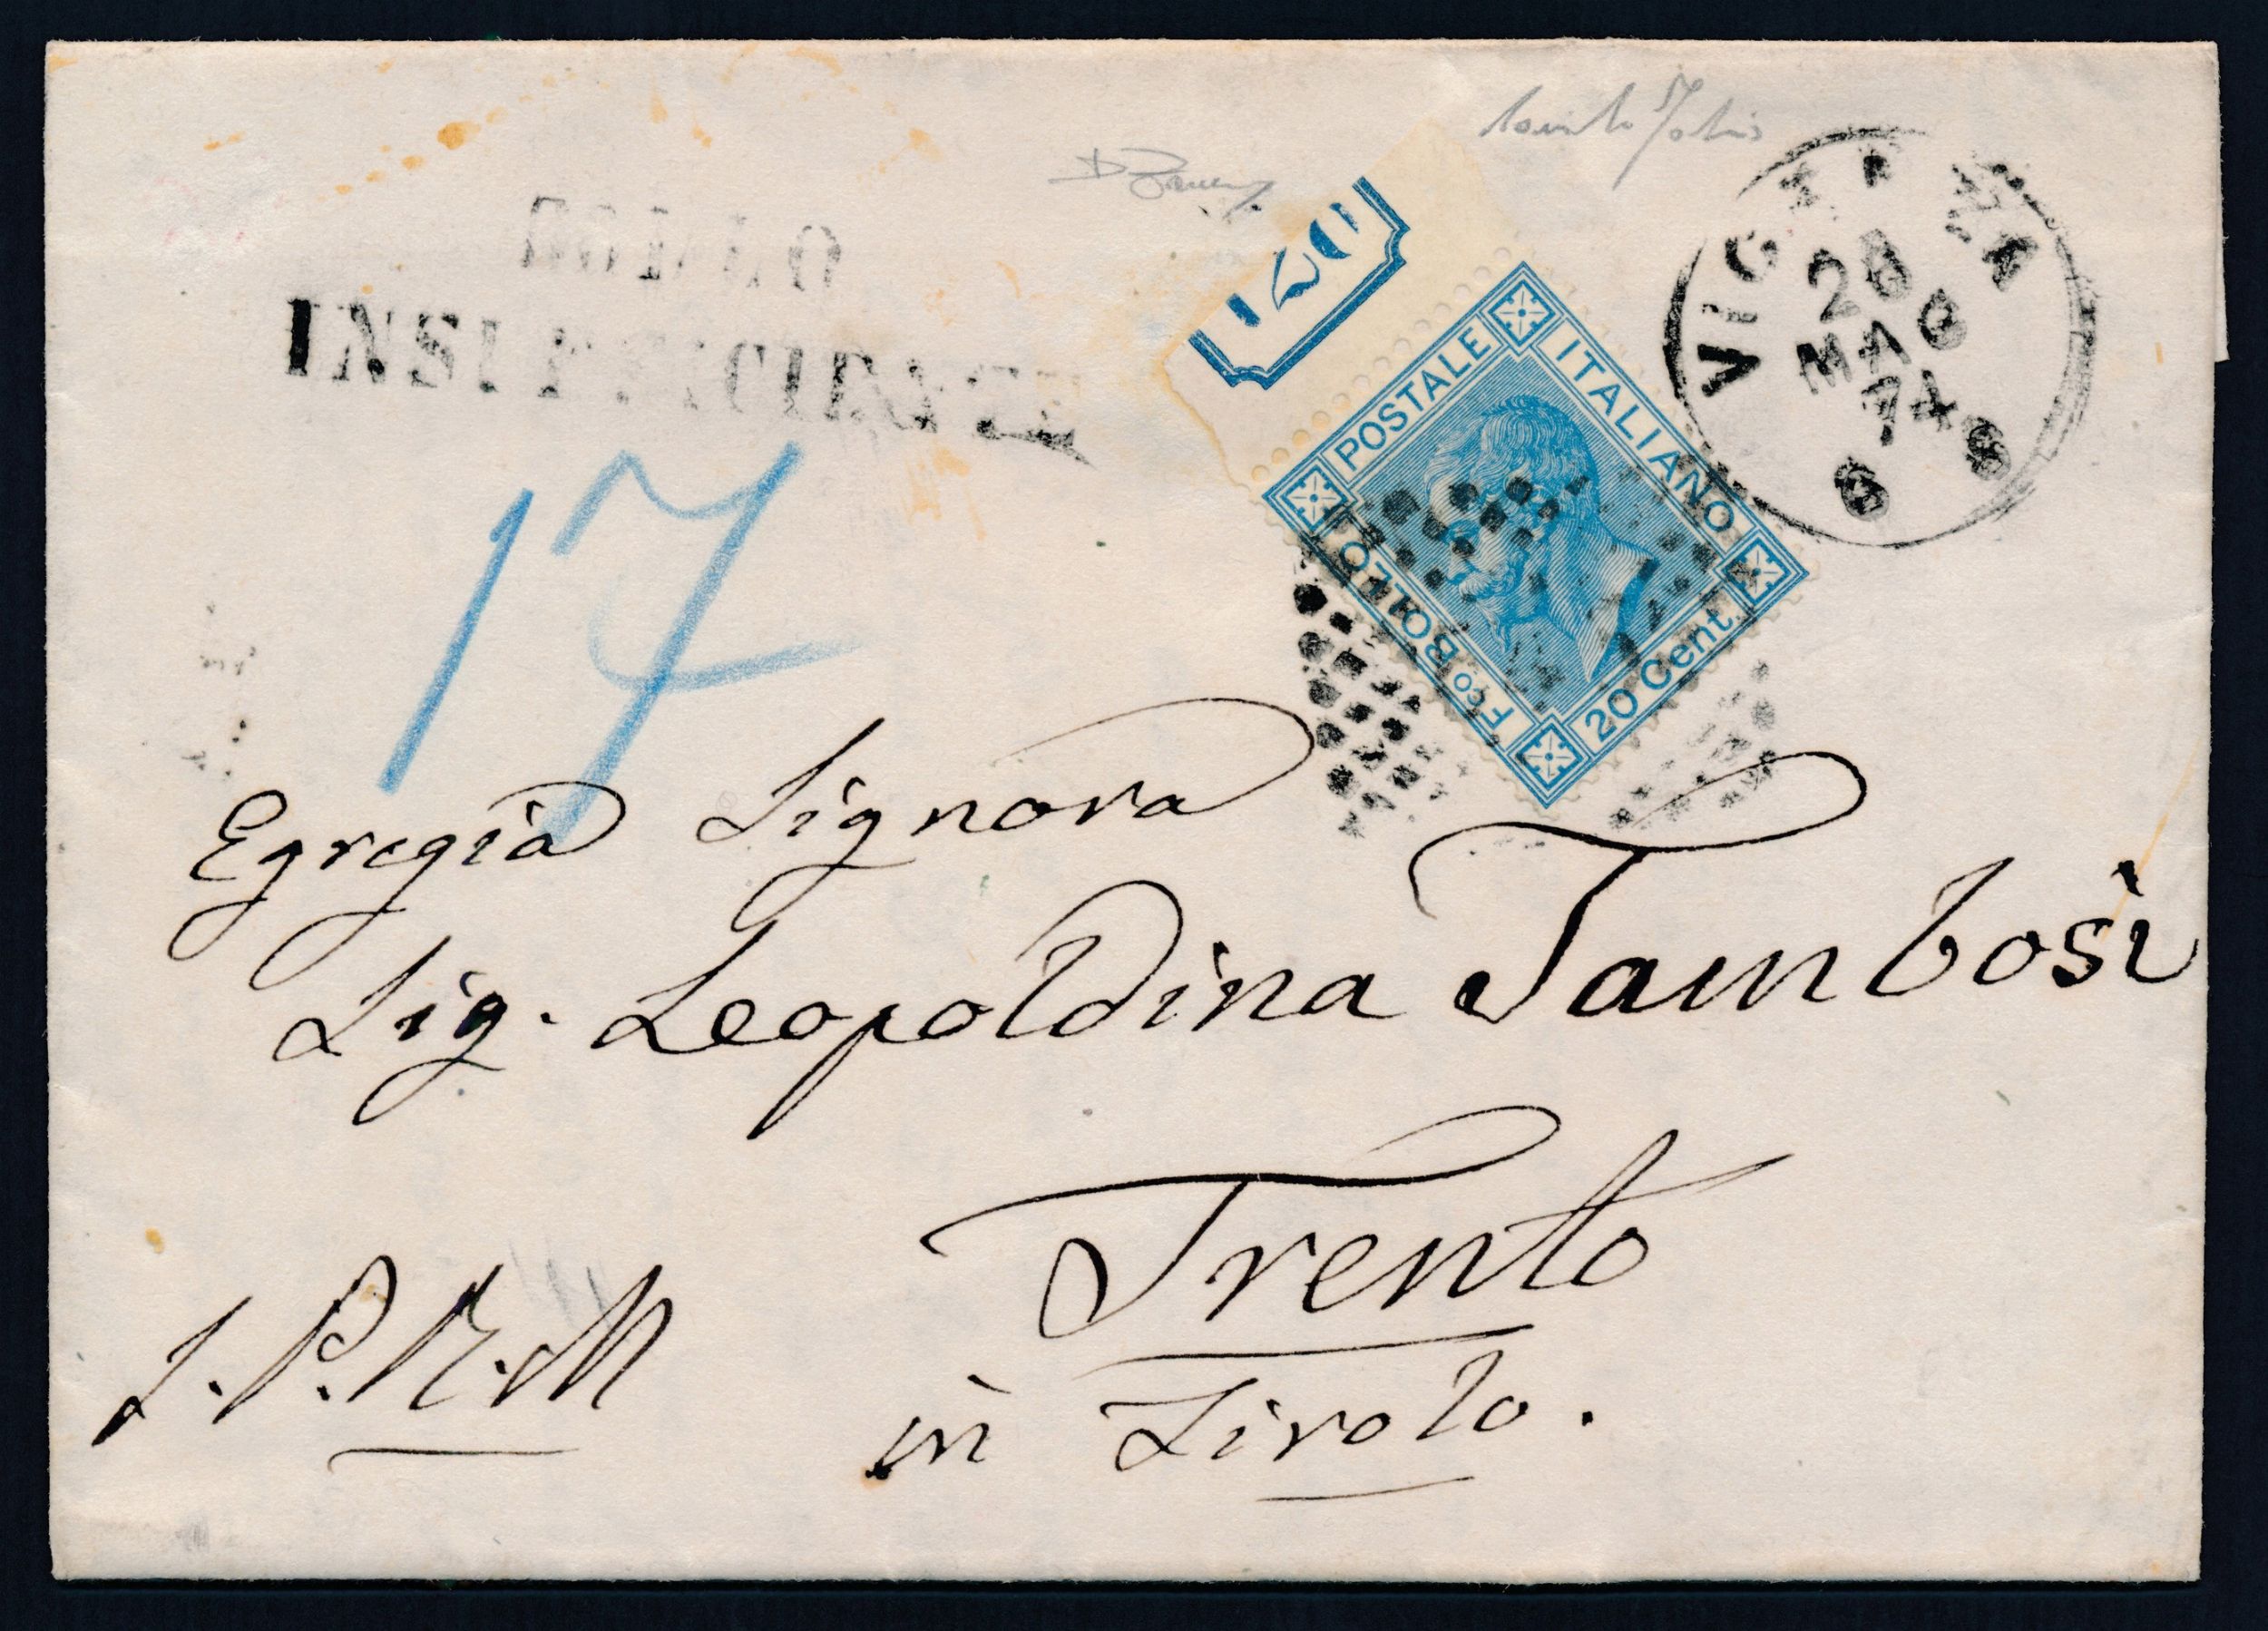 BOLLO
INSUFFICIENTE
17
120
POSTALE
ITALIANO
Fco BOLLO
20 Cent.
VIGEVANO
28
MAG
74
6 S
Egregia Signora
Sig. Leopoldina Tambosi
Trento
in Tirolo.
S.P.R.M